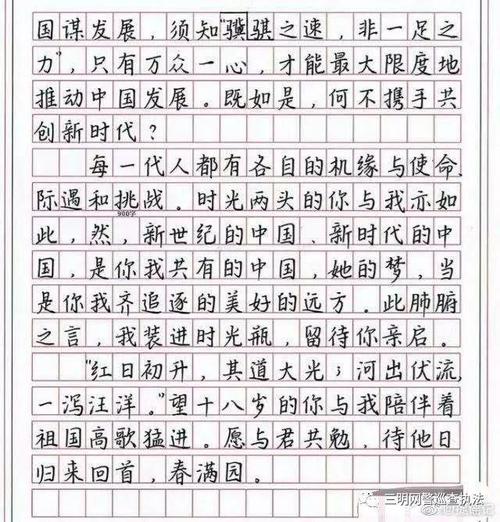 国谋发展，须知"骥骐之速，非一足之
力"，只有万众一心，才能最大限度地
推动中国发展。既如是，何不携手共
创新时代？
每一代人都有各自的机缘与使命，
际遇和挑战。时光两头的你与我亦如
900字
此，然，新世纪的中国、新时代的中
国，是你我共有的中国，她的梦，当
是你我齐追逐的美好的远方。此肺腑
之言，我装进时光瓶，留待你亲启。
"红日初升，其道大光；河出伏流，
一泻汪洋。"望十八岁的你与我陪伴着
祖国高歌猛进。愿与君共勉，待他日
归来回首，春满园。
三明网警巡查执法